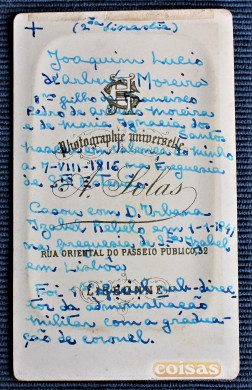 + (2ª
Joaquim Lucio
d'Abreu Moreira
8º filho de Francisco
Pedro de Moreira
e de Maria Ignacia dos Santos
em Valença do Minho
Photographie universelle
a 7-VIII-1816 na freguesia
de
A. Solas
Casou com D. Urbana
Izabel Rebelo em 1-1-1841
na freguesia de Stª Isabel
RUA ORIENTAL DO PASSEIO PUBLICO, 32
em Lisboa
LISBONNE
Foi sub-dire-
tor da administração
militar com a gradua-
ção de coronel.
coisas